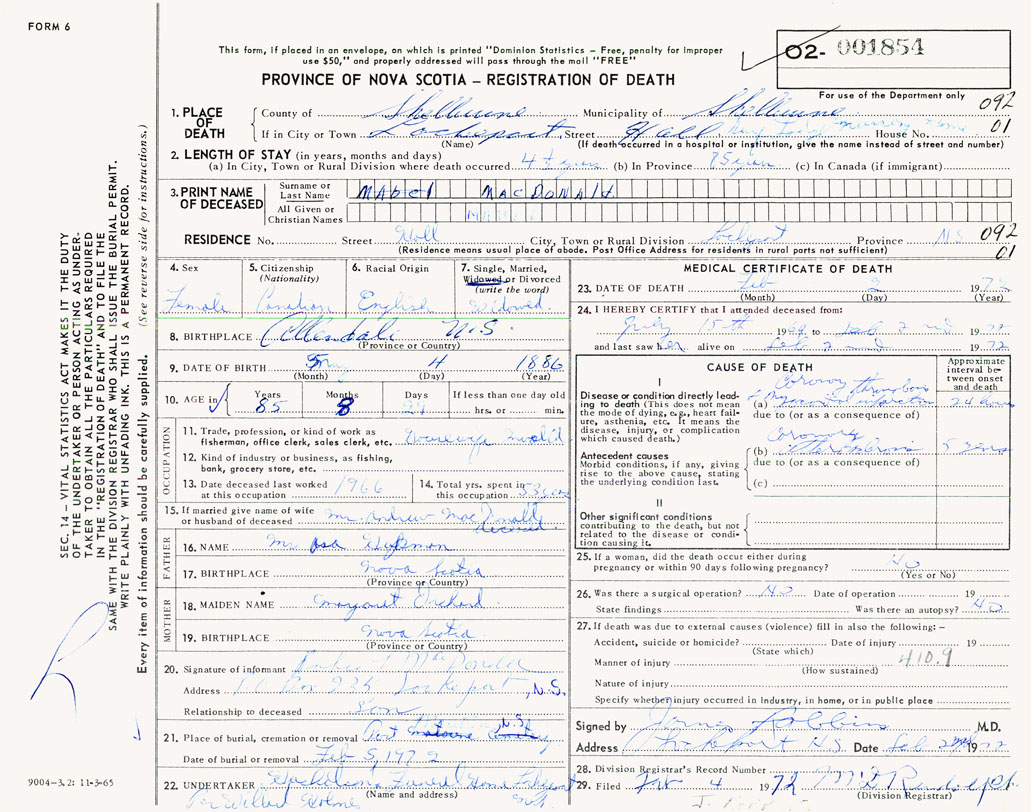 FORM 6
This form, if placed in an envelope, on which is printed "Dominion Statistics – Free, penalty for improper
use $50," and properly addressed will pass through the mail "FREE"
PROVINCE OF NOVA SCOTIA – REGISTRATION OF DEATH
O2- 001854
For use of the Department only
092
01
1. PLACE OF DEATH
County of Shelburne Municipality of Shelburne
If in City or Town Lockeport Street Hall House No.
(Name) (If death occurred in a hospital or institution, give the name instead of street and number)
2. LENGTH OF STAY (in years, months and days)
(a) In City, Town or Rural Division where death occurred 4 ½ years (b) In Province 85 years (c) In Canada (if immigrant)
3. PRINT NAME OF DECEASED
Surname or Last Name Mabel MacDonald
All Given or Christian Names
RESIDENCE No. Street Hall City, Town or Rural Division Lockeport Province N.S.
(Residence means usual place of abode. Post Office Address for residents in rural parts not sufficient)
092
01
4. Sex Female
5. Citizenship (Nationality) Canadian
6. Racial Origin English
7. Single, Married, Widowed or Divorced (write the word) Widowed
8. BIRTHPLACE Allendale N.S.
(Province or Country)
9. DATE OF BIRTH May 4 1886
(Month) (Day) (Year)
10. AGE in Years 85 Months 8 Days If less than one day old hrs. or min.
OCCUPATION
11. Trade, profession, or kind of work as fisherman, office clerk, sales clerk, etc.
12. Kind of industry or business, as fishing, bank, grocery store, etc.
13. Date deceased last worked at this occupation 1966
14. Total yrs. spent in this occupation
15. If married give name of wife or husband of deceased Mr. Andrew MacDonald
deceased
FATHER
16. NAME Mr. Asa
17. BIRTHPLACE Nova Scotia
(Province or Country)
MOTHER
18. MAIDEN NAME Margaret Orchard
19. BIRTHPLACE Nova Scotia
(Province or Country)
20. Signature of informant MacDonald
Address P.O. Box 234 Lockeport, N.S.
Relationship to deceased Son
21. Place of burial, cremation or removal Port N.S.
Date of burial or removal Feb 5, 1972
22. UNDERTAKER Funeral Home
(Name and address)
MEDICAL CERTIFICATE OF DEATH
23. DATE OF DEATH Feb 2 1972
(Month) (Day) (Year)
24. I HEREBY CERTIFY that I attended deceased from:
July 15th 1969 to Feb 2nd 1972
and last saw her alive on Feb 2nd 1972
CAUSE OF DEATH
Approximate interval between onset and death
I
Disease or condition directly leading to death (This does not mean the mode of dying, e.g., heart failure, asthenia, etc. It means the disease, injury, or complication which caused death.)
(a) Coronary thrombosis + Myocardial infarction
due to (or as a consequence of)
Antecedent causes
Morbid conditions, if any, giving rise to the above cause, stating the underlying condition last.
(b) Coronary
due to (or as a consequence of)
(c)
II
Other significant conditions contributing to the death, but not related to the disease or condition causing it.
25. If a woman, did the death occur either during pregnancy or within 90 days following pregnancy? No
(Yes or No)
26. Was there a surgical operation? No Date of operation 19
State findings Was there an autopsy? No
27. If death was due to external causes (violence) fill in also the following: –
Accident, suicide or homicide? Date of injury 19
(State which)
Manner of injury 410.9
(How sustained)
Nature of injury
Specify whether injury occurred in Industry, in home, or in public place
Signed by James Robbins M.D.
Address Lockeport N.S. Date Feb 1972
28. Division Registrar's Record Number
29. Filed Feb 4 1972
(Division Registrar)
SEC. 14 – VITAL STATISTICS ACT MAKES IT THE DUTY
OF THE UNDERTAKER OR PERSON ACTING AS UNDER-
TAKER TO OBTAIN ALL THE PARTICULARS REQUIRED
IN THE "REGISTRATION OF DEATH" AND TO FILE THE
SAME WITH THE DIVISION REGISTRAR WHO SHALL ISSUE THE BURIAL PERMIT.
WRITE PLAINLY WITH UNFADING INK. THIS IS A PERMANENT RECORD.
Every item of information should be carefully supplied. (See reverse side for instructions.)
9004-3.2: 11-3-65